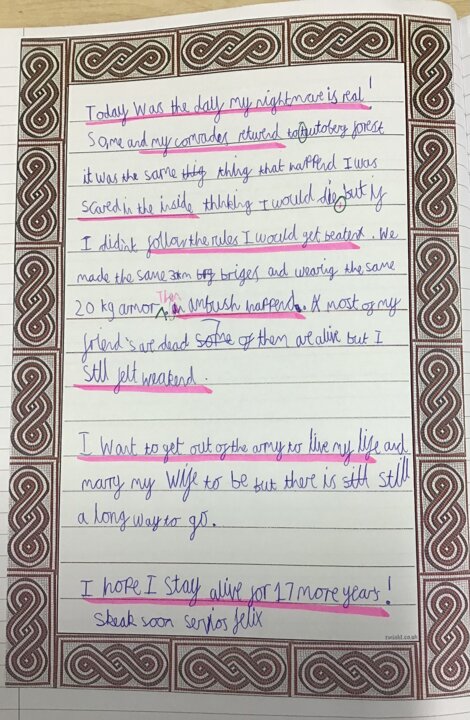 Today was the day my nightmare is real!
So me and my comrades returend to tutoberg forest
it was the same thig thing that happend I was
scared in the inside thinking I would die but if
I didin't follow the rules I would get beatent. We
made the same 3km briges and wearing the same
20 kg armor. Then an ambush happend. A most of my
friend's are dead some of them are alive but I
still felt weakend.
I want to get out of the army to live my life and
marry my wife to be but there is still still
a long way to go.
I hope I stay alive for 17 more years!
Skeak soon servios felix
twinkl.co.uk